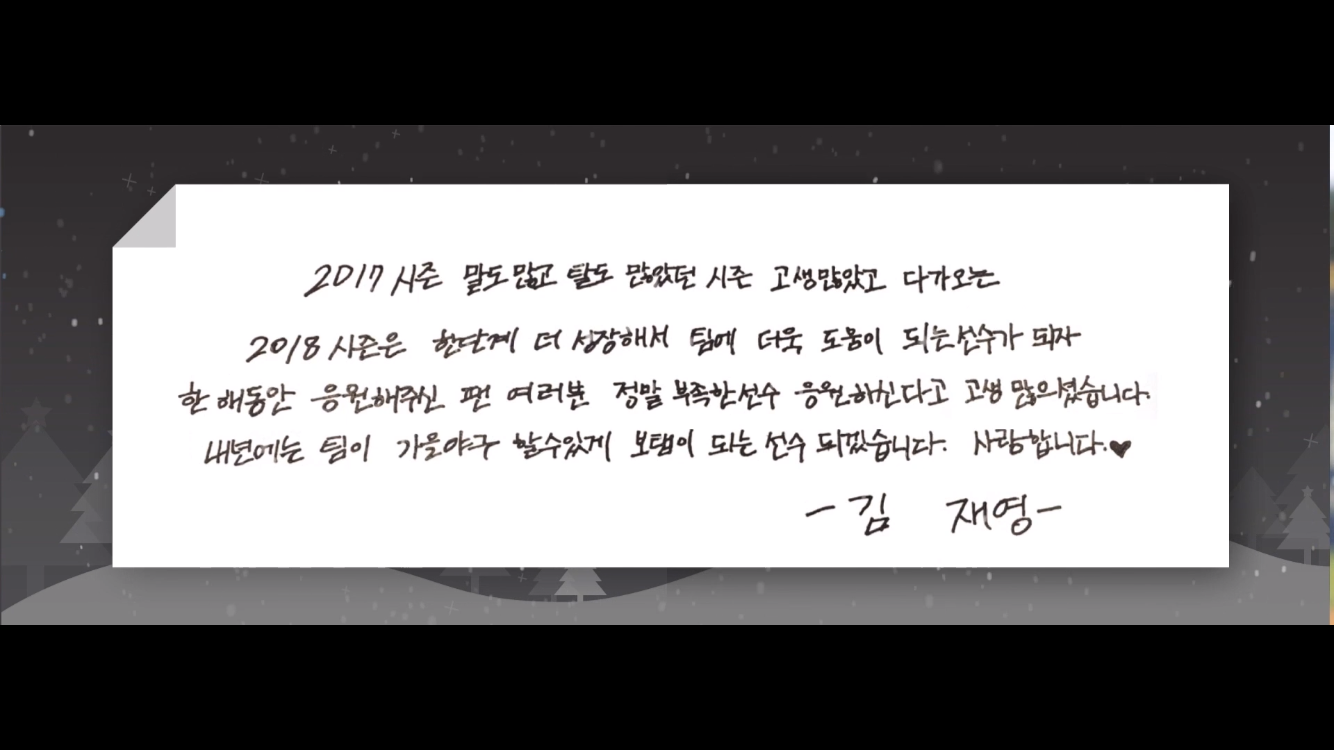 2017 시즌 말도많고 탈도 많았던 시즌 고생많았고 다가오는
2018 시즌은 한단계 더 성장해서 팀에 더욱 도움이 되는선수가 되자
한 해동안 응원해주신 팬 여러분 정말 부족한선수 응원하신다고 고생 많으셨습니다.
내년에는 팀이 가을야구 할수있게 보탬이 되는 선수 되겠습니다. 사랑합니다.♥
-김 재영-